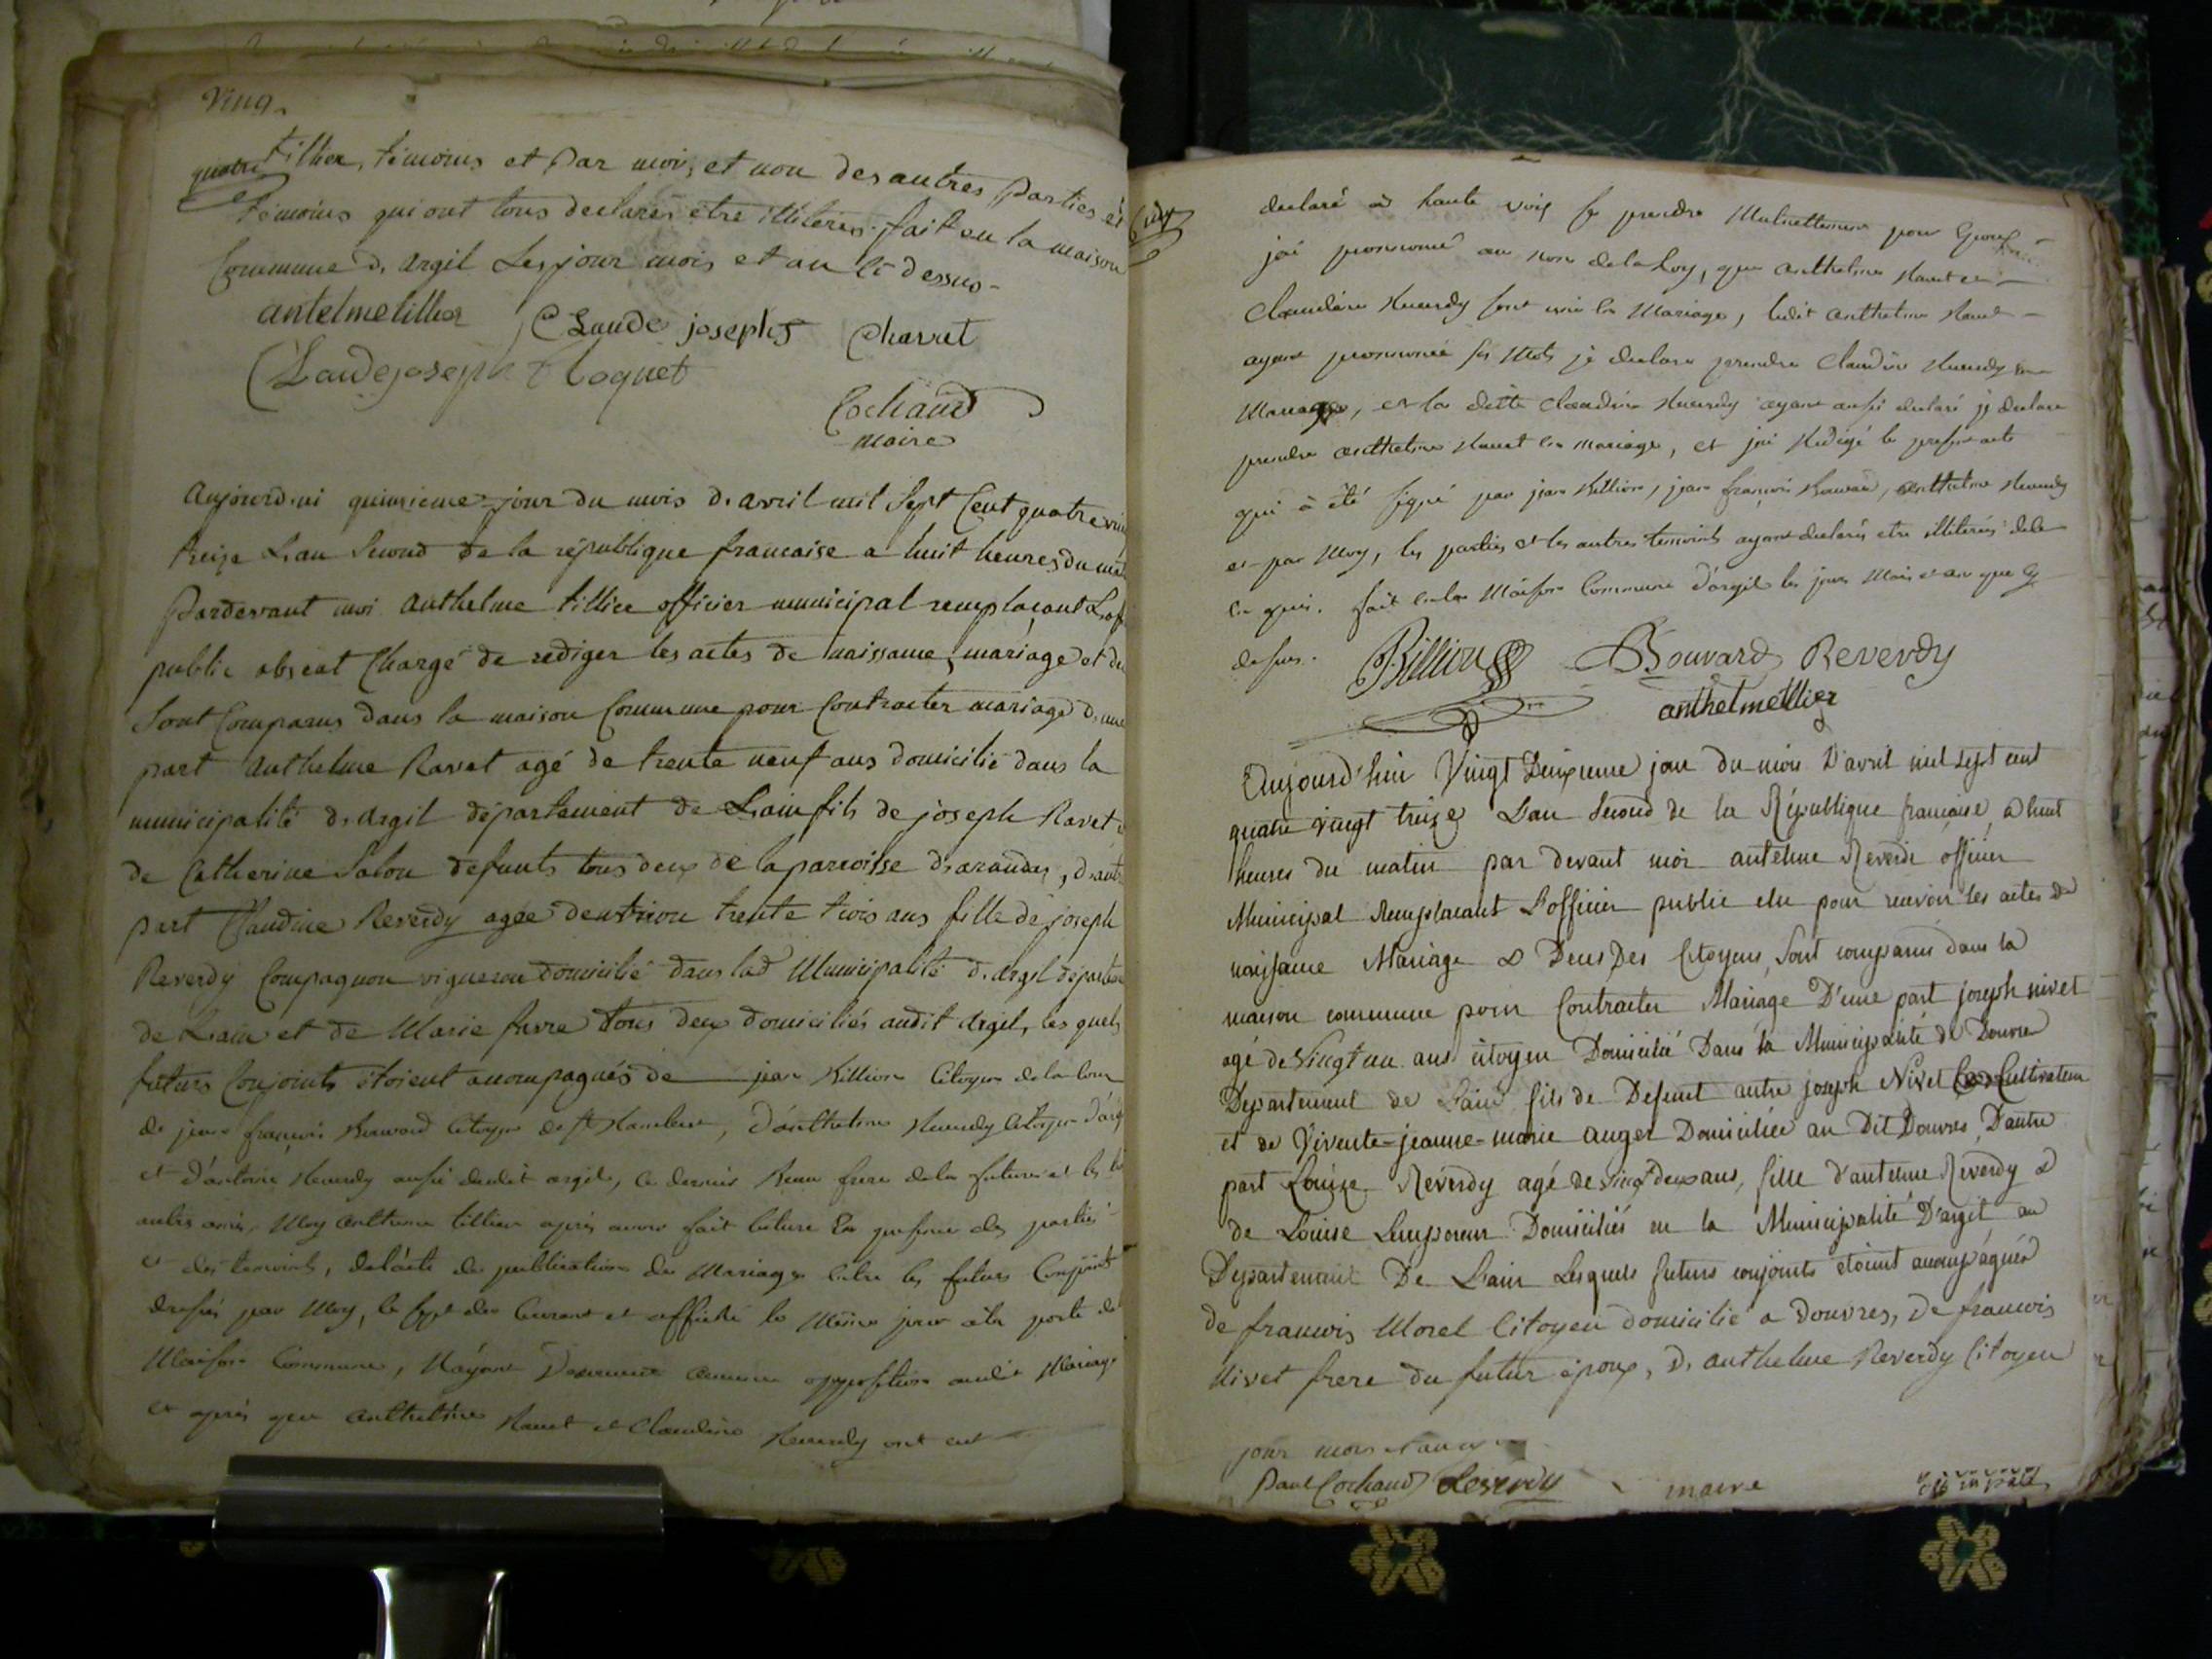 ving
quatre
tillier, témoins et par moi, et non des autres parties et
témoins qui ont tous declarés etre illiterés. fait en la maison
Commune d. argil Les jour mois et an ci dessus -
antelmetillier Claude joseph Charvet
Claudejoseph Cloquet
Cochaud
maire
Aujourd.ui quinzieme jour du mois d. avril mil Sept Cent quatre vin
treize L.an Second de la république francaise a huit heures du mat
Pardevant moi anthelme tillier officier municipal remplacant L.off
public absent Chargé de rediger les actes de naissance, mariage et de
Sont Comparus dans la maison Commune pour Contracter mariage d.une
part Anthelme Ravet agé de trente neuf ans domicilié dans la
municipalité d. Argil département de L.ain fils de joseph Ravet
de Catherine Salon defunts tous deux de la paroisse d.arandas, d.autre
part Claudine Reverdy agée denviron trente trois ans fille de joseph
Reverdy Compagnon vigneron domicilié dans lad Municipalité d. argil départem
de L.ain et de Marie favre tous deux domiciliés audit Argil, les quels
futurs Conjoints étoient accompagnés de jean Billion Citoyen de la Com
de jean françois Bouvard Citoyen de St Rambert, d'anthelme Reverdy Citoyen d'arg
et d'antoine Reverdy aussi dudit argil, ce dernier Beau frere de la future et les
autres amis, Moy anthelme tillier aprés avoir fait lecture En presence des parties
et des temoins, de l'acte de publication du Mariage Entre les futurs Conjoint
dressé par Moy, le sept du Courant et affiché le Même jour à la porte de
Maison Commune, N'ayant aucune opposition audit Mariage
et aprés que Anthelme Ravet et Claudine Reverdy ont eut
declaré à haute voix se prendre Mutuellement pour Epoux
jai prononcé au nom de la Loy, que anthelme Ravet et
Claudine Reverdy sont unis En Mariage, ledit anthelme Ravet
ayant prononcé ses Mots je declare prendre Claudine Reverdy en
Mariage, et la ditte Claudine Reverdy ayant aussi declaré je declare
prendre anthelme Ravet En mariage, et jai Redigé le present acte
qui à été signé par jean Billion, jean françois Bouvard, anthelme Reverdy
et par Moy, les parties et les autres temoins ayant declarés etre illiterés de ce
En quis. Fait En la Maison Commune d'argil les jour Mois et an que Cy
dessus.
Billion Bouvard Reverdy
anthelmetillier
Aujourd'hui Vingt Deuxieme jour du mois D'avril mil sept cent
quatre vingt treize L'an Second de la République francaise, à huit
heures du matin par devant moi antelme Reverdi officier
Municipal Remplacant L'officier public elu pour recevoir les actes de
naissance Mariage & Deces Des Citoyens, Sont comparus dans la
maison commune pour Contracter Mariage D'une part joseph nivet
agé de Vingt un ans citoyen Domicilié Dans la Municipalité de Douvres
Departement de L'ain fils de Defunt autre joseph Nivet Cultivateur
et de Vivente-jeanne-marie auger Domiciliée au Dit Douvres, D'autre
part Louise Reverdy agé de vingt deux ans, fille d'antelme Reverdy &
de Louise Lempereur Domiciliés en la Municipalité D'argil au
Departement De L'ain Lesquels futurs conjoints étoient accompagnés
de francois Morel Citoyen domicilié a douvres, de francois
Nivet frere du futur époux, d. anthelme Reverdy Citoyen
jour mois et an
Paul Cochaud Reverdy maire